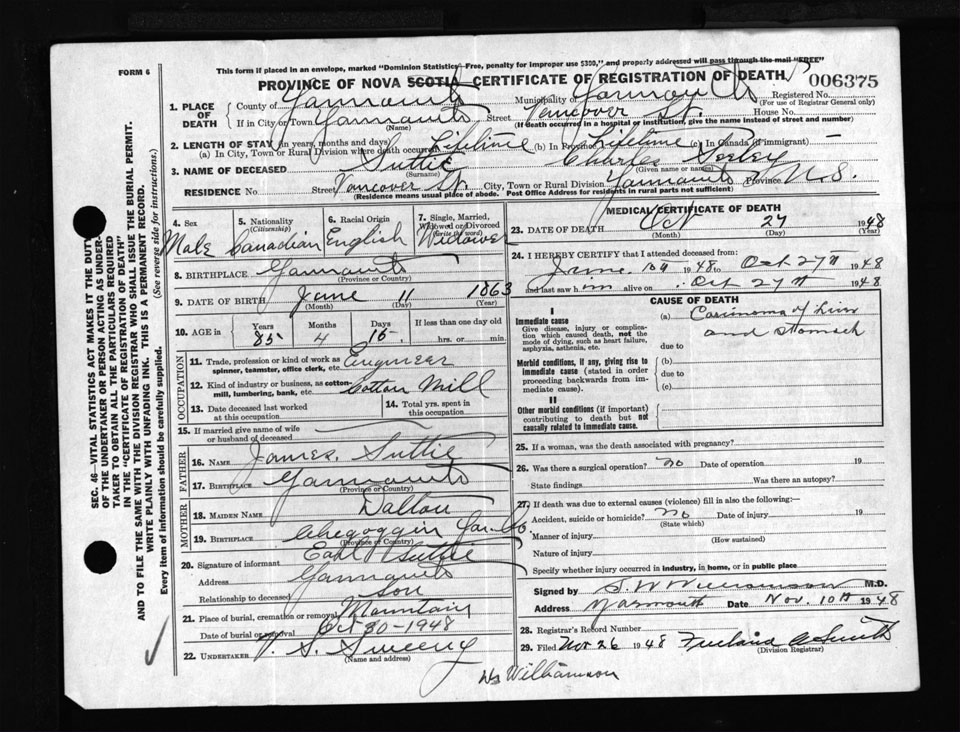 FORM 6
This form if placed in an envelope, marked "Dominion Statistics—Free, penalty for improper use $300," and properly addressed will pass through the mail "FREE"
PROVINCE OF NOVA SCOTIA CERTIFICATE OF REGISTRATION OF DEATH
006375
1. PLACE OF DEATH
County of Yarmouth Municipality of Yarmouth Registered No.
(For use of Registrar General only)
If in City or Town Yarmouth Street Vancover St. House No.
(Name) (If death occurred in a hospital or institution, give the name instead of street and number)
2. LENGTH OF STAY (in years, months and days)
(a) In City, Town or Rural Division where death occurred Lifetime (b) In Province Lifetime (c) In Canada (if immigrant) —
3. NAME OF DECEASED Suttie Charles Seeley
(Surname) (Given name or names)
RESIDENCE No. Street Vancover St. City, Town or Rural Division Yarmouth Province N.S.
(Residence means usual place of abode. Post Office Address for residents in rural parts not sufficient)
4. Sex Male
5. Nationality (Citizenship) Canadian
6. Racial Origin English
7. Single, Married, Widowed or Divorced (write the word) Widower
8. BIRTHPLACE Yarmouth
(Province or Country)
9. DATE OF BIRTH June 11 1863
(Month) (Day) (Year)
10. AGE in Years Months Days If less than one day old
85 4 16 hrs. or min.
OCCUPATION
11. Trade, profession or kind of work as spinner, teamster, office clerk, etc. Engineer
12. Kind of industry or business, as cotton-mill, lumbering, bank, etc. Cotton Mill
13. Date deceased last worked at this occupation
14. Total yrs. spent in this occupation
15. If married give name of wife or husband of deceased
FATHER
16. NAME James Suttie
17. BIRTHPLACE Yarmouth
(Province or Country)
MOTHER
18. MAIDEN NAME Dalton
19. BIRTHPLACE Chegoggin Yar. Co.
(Province or Country)
20. Signature of informant Earl Suttie
Address Yarmouth
Relationship to deceased son
21. Place of burial, cremation or removal Mountain
Date of burial or removal Oct 30-1948
22. UNDERTAKER V. S. Sweeny
(Name and address)
MEDICAL CERTIFICATE OF DEATH
23. DATE OF DEATH Oct 27 1948
(Month) (Day) (Year)
24. I HEREBY CERTIFY that I attended deceased from:
June 10th 1948 to Oct 27th 1948
and last saw him alive on Oct 27th 1948
CAUSE OF DEATH
I
Immediate cause
Give disease, injury or complication which caused death, not the mode of dying, such as heart failure, asphyxia, asthenia, etc.
(a) Carcinoma of Liver
and Stomach
due to
Morbid conditions, if any, giving rise to immediate cause (stated in order proceeding backwards from immediate cause).
(b)
due to
(c)
II
Other morbid conditions (if important) contributing to death but not causally related to immediate cause.
25. If a woman, was the death associated with pregnancy?
26. Was there a surgical operation? no Date of operation 19
State findings Was there an autopsy?
27. If death was due to external causes (violence) fill in also the following:—
Accident, suicide or homicide? no Date of injury 19
(State which)
Manner of injury
(How sustained)
Nature of injury
Specify whether injury occurred in industry, in home, or in public place
Signed by S W Williamson M.D.
Address Yarmouth Date Nov. 10th 1948
28. Registrar's Record Number
29. Filed Nov 26 1948 Smith
(Division Registrar)
Williamson
SEC. 46—VITAL STATISTICS ACT MAKES IT THE DUTY
OF THE UNDERTAKER OR PERSON ACTING AS UNDER-
TAKER TO OBTAIN ALL THE PARTICULARS REQUIRED
IN THE "CERTIFICATE OF REGISTRATION OF DEATH"
AND TO FILE THE SAME WITH THE DIVISION REGISTRAR WHO SHALL ISSUE THE BURIAL PERMIT.
WRITE PLAINLY WITH UNFADING INK. THIS IS A PERMANENT RECORD.
Every item of information should be carefully supplied. (See reverse side for instructions.)